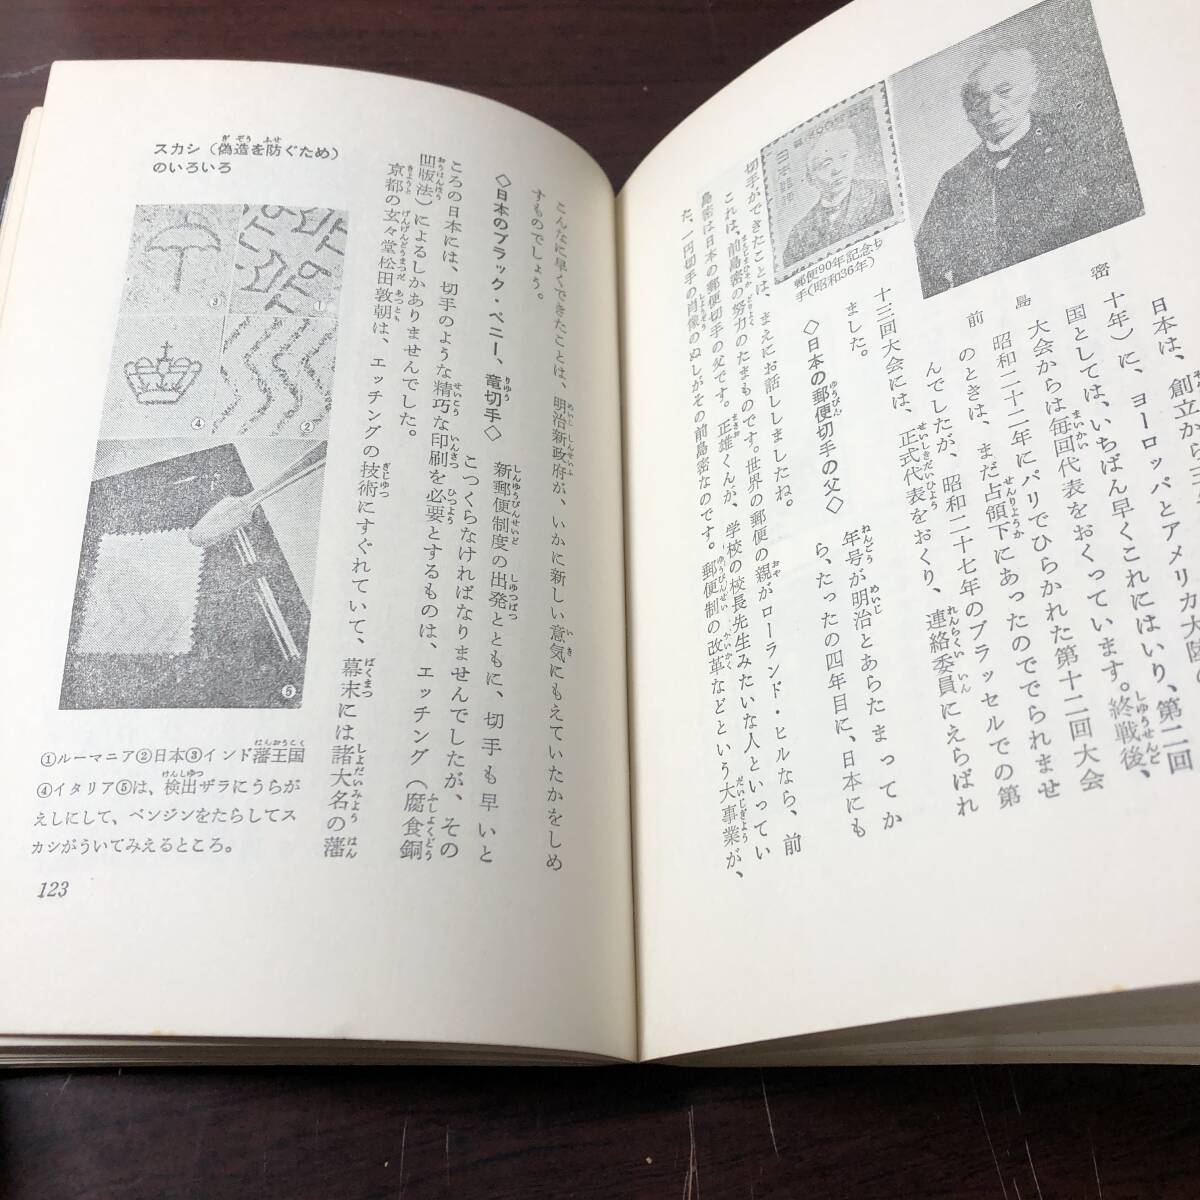 日本は、創立から
十年）に、ヨーロッパとアメリカ大陸の
国としては、いちばん早くこれにはいり、第二回
大会からは毎回代表をおくっています。終戦後、
昭和二十二年にパリでひらかれた第十二回大会
のときは、まだ占領下にあったのででられませ
んでしたが、昭和二十七年のブラッセルでの第
十三回大会には、正式代表をおくり、連絡委員にえらばれ
ました。
前島密
郵便90年記念切
手（昭和36年）
◇日本の郵便切手の父◇
年号が明治とあらたまってか
ら、たったの四年目に、日本にも
切手ができたことは、まえにお話ししましたね。
これは、前島密の努力のたまものです。世界の郵便の親がローランド・ヒルなら、前
島密は日本の郵便切手の父です。正雄くんが、学校の校長先生みたいな人といってい
た、一円切手の肖像のぬしがその前島密なのです。郵便制の改革などという大事業が、
こんなに早くできたことは、明治新政府が、いかに新しい意気にもえていたかをしめ
すものでしょう。
◇日本のブラック・ペニー、竜切手◇
新郵便制度の出発とともに、切手も早いと
こつくらなければなりませんでしたが、その
ころの日本には、切手のような精巧な印刷を必要とするものは、エッチング（腐食銅
凹版法）によるしかありませんでした。
京都の玄々堂松田敦朝は、エッチングの技術にすぐれていて、幕末には諸大名の藩
スカシ（偽造を防ぐため）
のいろいろ
③
①
④
②
⑤
①ルーマニア②日本③インド藩王国
④イタリア⑤は、検出ザラにうらが
えしにして、ベンジンをたらしてス
カシがういてみえるところ。
123